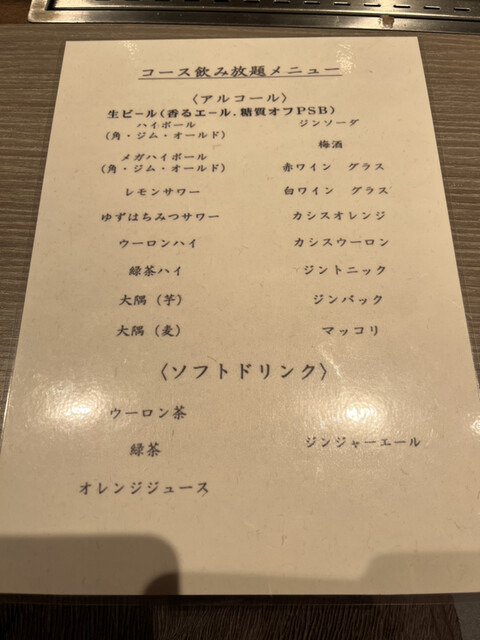 コース飲み放題メニュー
〈アルコール〉
生ビール(香るエール.糖質オフPSB)
ハイボール
(角・ジム・オールド)
メガハイボール
(角・ジム・オールド)
レモンサワー
ゆずはちみつサワー
ウーロンハイ
緑茶ハイ
大隅(芋)
大隅(麦)
ジンソーダ
梅酒
赤ワイン グラス
白ワイン グラス
カシスオレンジ
カシスウーロン
ジントニック
ジンバック
マッコリ
〈ソフトドリンク〉
ウーロン茶
緑茶
オレンジジュース
ジンジャーエール